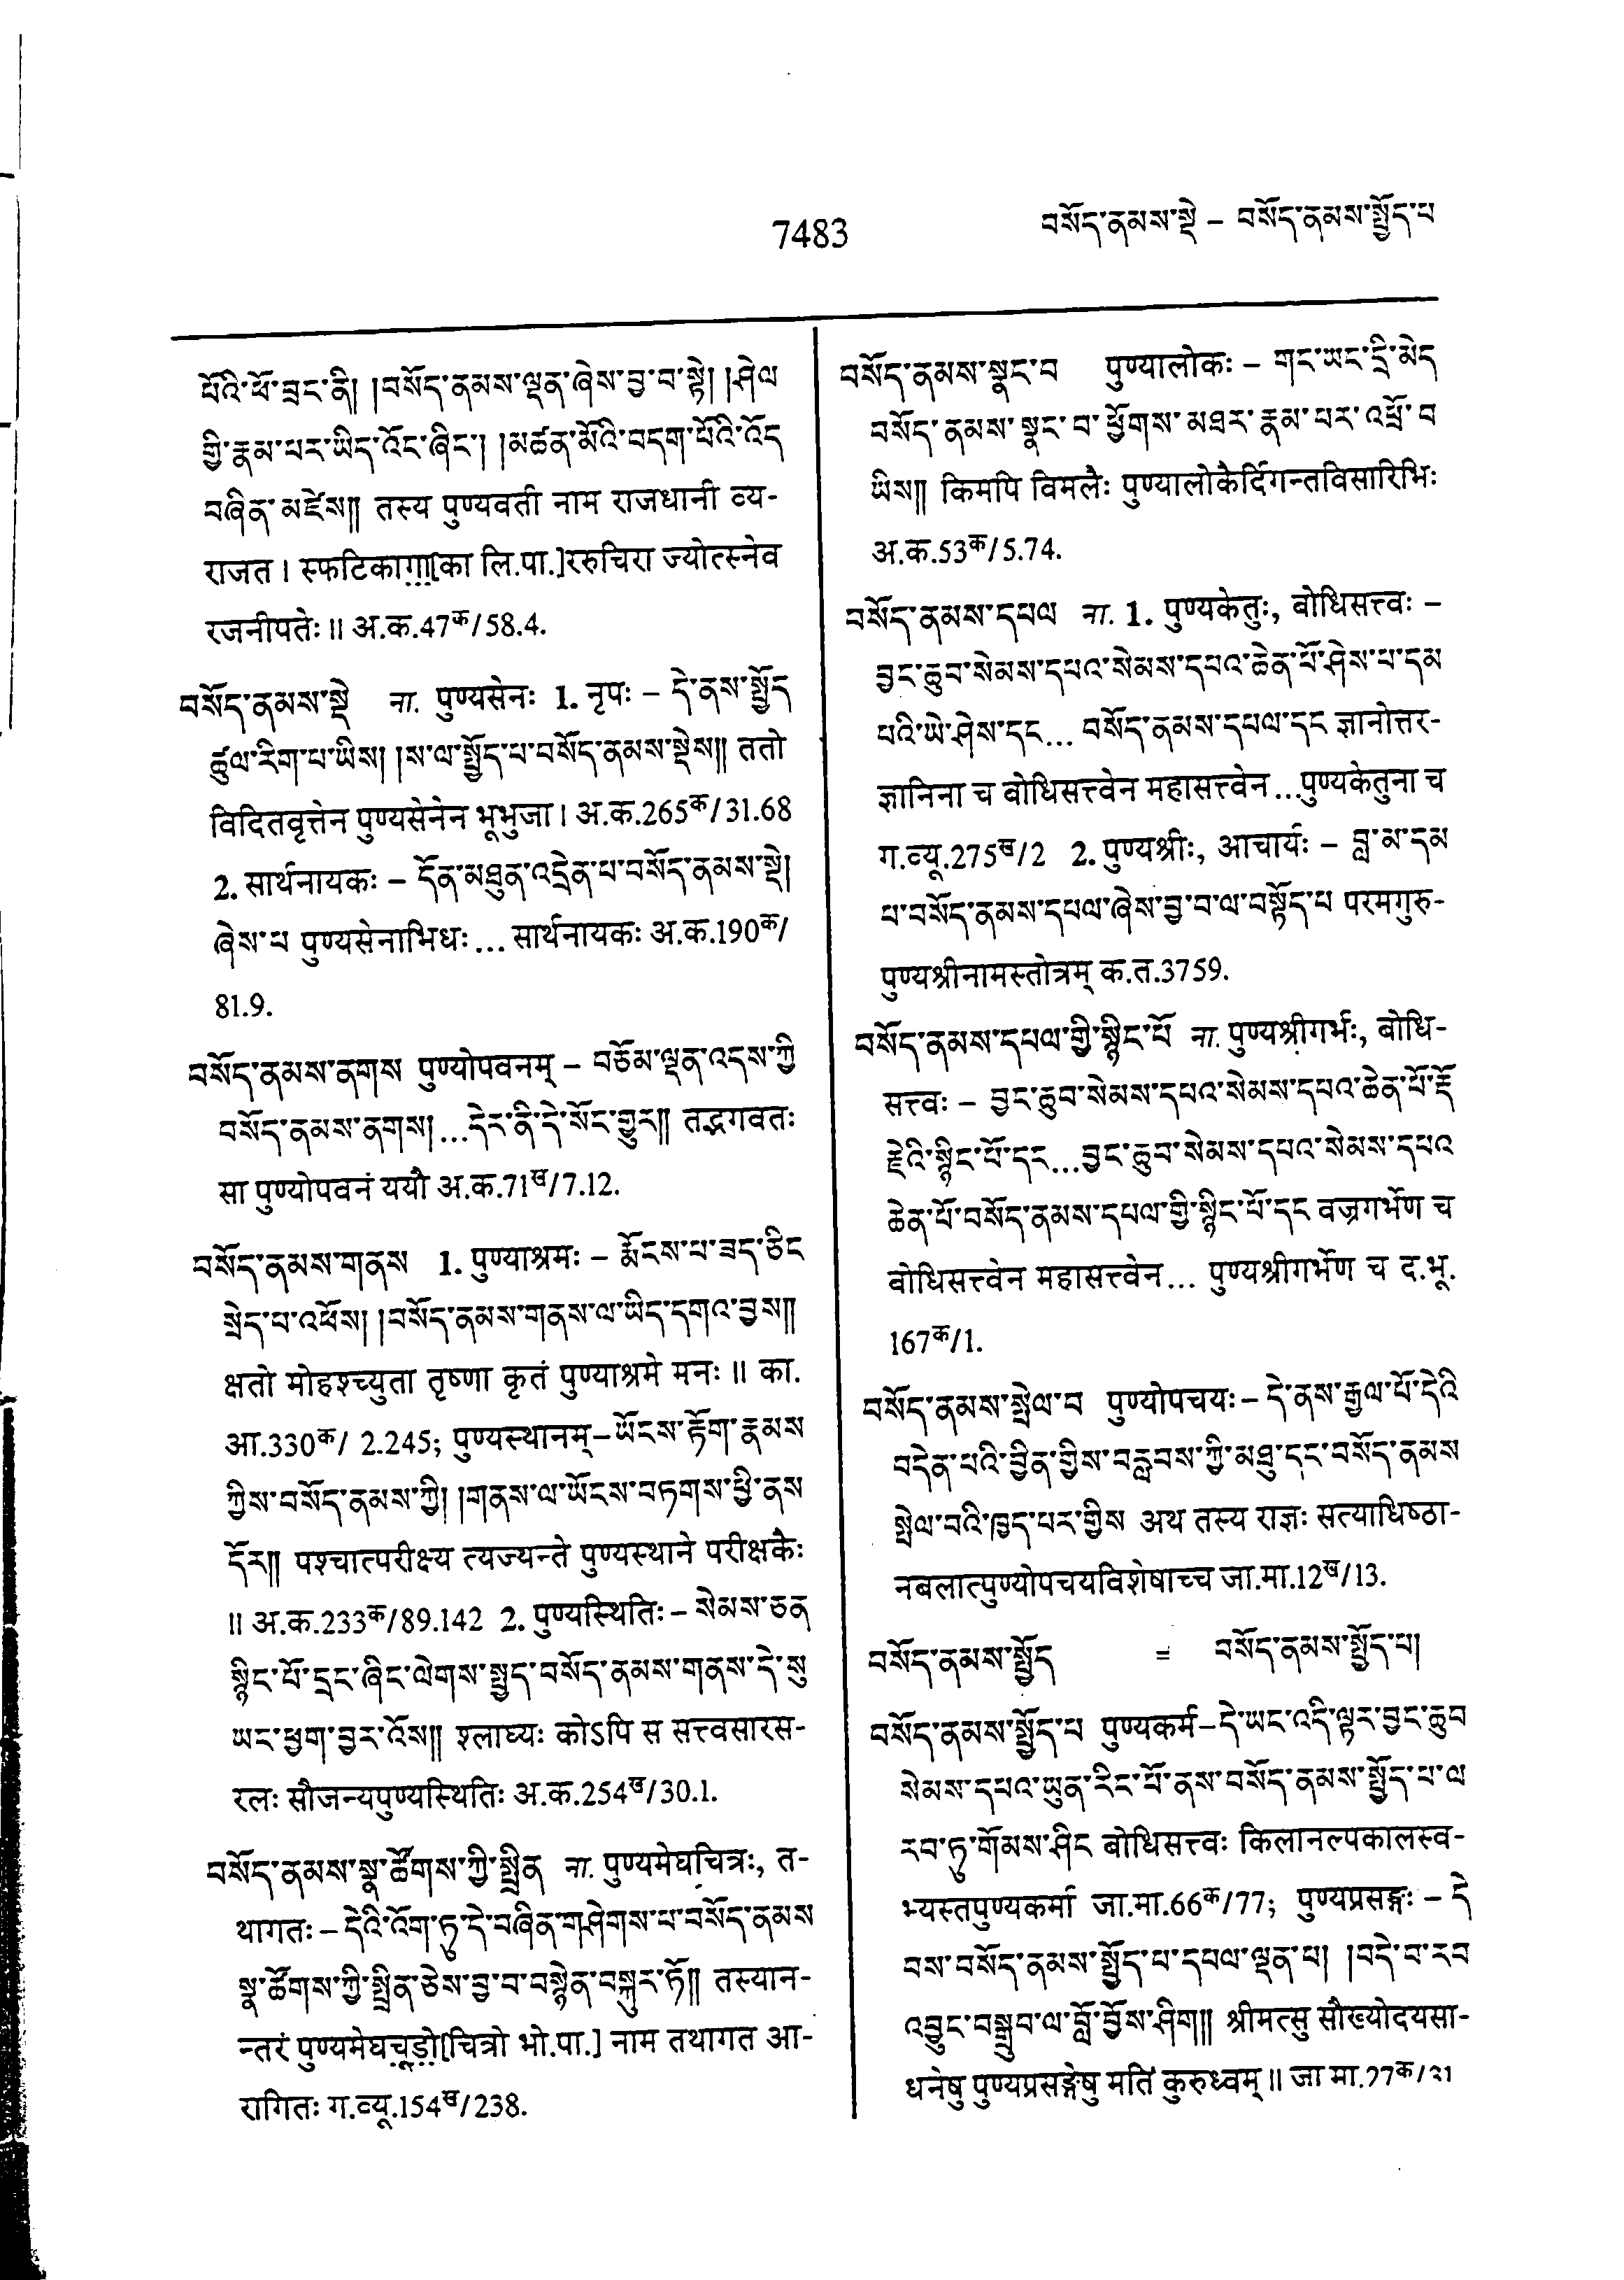 7483
བསོད་ནམས་སྡེ – བསོད་ནམས་སྤྱོད་པ
པོའི་ཕོ་བྲང་ནི། །བསོད་ནམས་ལྡན་ཞེས་བྱ་བ་སྟེ། །ཤེལ
གྱི་རྣམ་པར་ཡིད་འོང་ཞིང་། །མཚན་མོའི་བདག་པོའི་འོད
བཞིན་མཛེས།། तस्य पुण्यवती नाम राजधानी व्य-
राजत । स्फटिकागा[का लि.पा.]ररुचिरा ज्योत्स्नेव
रजनीपतेः ॥ अ.क.47क/58.4.
བསོད་ནམས་སྡེ ना. पुण्यसेनः 1. नृपः – དེ་ནས་སྤྱོད
ཚུལ་རིག་པ་ཡིས། །ས་ལ་སྤྱོད་པ་བསོད་ནམས་སྡེས།། ततो
विदितवृत्तेन पुण्यसेनेन भूभुजा । अ.क.265क/31.68
2. सार्थनायकः – དོན་མཐུན་འདྲེན་པ་བསོད་ནམས་སྡེ།
ཞེས་པ पुण्यसेनाभिधः... सार्थनायकः अ.क.190क/
81.9.
བསོད་ནམས་ནགས पुण्योपवनम् – བཅོམ་ལྡན་འདས་ཀྱི
བསོད་ནམས་ནགས།...དེར་ནི་དེ་སོང་གྱུར།། तद्भगवतः
सा पुण्योपवनं ययौ अ.क.71ख/7.12.
བསོད་ནམས་གནས 1. पुण्याश्रमः – རྨོངས་པ་ཟད་ཅིང
སྲེད་པ་འཕོས། །བསོད་ནམས་གནས་ལ་ཡིད་དགའ་བྱས།།
क्षतो मोहश्च्युता तृष्णा कृतं पुण्याश्रमे मनः ॥ का.
आ.330क/ 2.245; पुण्यस्थानम् – ཡོངས་རྟོག་རྣམས
ཀྱིས་བསོད་ནམས་ཀྱི། །གནས་ལ་ཡོངས་བཏགས་ཕྱི་ནས
དོར།། पश्चात्परीक्ष्य त्यज्यन्ते पुण्यस्थाने परीक्षकैः
॥ अ.क.233क/89.142 2. पुण्यस्थितिः – སེམས་ཅན
སྙིང་པོ་དྲང་ཞིང་ལེགས་སྤྱད་བསོད་ནམས་གནས་དེ་སུ
ཡང་ཕྱག་བྱར་འོས།། श्लाघ्यः कोऽपि स सत्त्वसारस-
रलः सौजन्यपुण्यस्थितिः अ.क.254ख/30.1.
བསོད་ནམས་སྣ་ཚོགས་ཀྱི་སྤྲིན ना. पुण्यमेघचित्रः, त-
थागतः – དེའི་འོག་ཏུ་དེ་བཞིན་གཤེགས་པ་བསོད་ནམས
སྣ་ཚོགས་ཀྱི་སྤྲིན་ཅེས་བྱ་བ་བསྙེན་བསྐུར་ཏོ།། तस्यान-
न्तरं पुण्यमेघचूडो[चित्रो भो.पा.] नाम तथागत आ-
रागितः ग.व्यू.154ख/238.
བསོད་ནམས་སྣང་བ पुण्यालोकः – གང་ཡང་དྲི་མེད
བསོད་ནམས་སྣང་བ་ཕྱོགས་མཐར་རྣམ་པར་འཕྲོ་བ
ཡིས།། किमपि विमलैः पुण्यालोकैर्दिगन्तविसारिभिः
अ.क.53क/5.74.
བསོད་ནམས་དཔལ ना. 1. पुण्यकेतुः, बोधिसत्त्वः –
བྱང་ཆུབ་སེམས་དཔའ་སེམས་དཔའ་ཆེན་པོ་ཤེས་པ་དམ
པའི་ཡེ་ཤེས་དང... བསོད་ནམས་དཔལ་དང ज्ञानोत्तर-
ज्ञानिना च बोधिसत्त्वेन महासत्त्वेन...पुण्यकेतुना च
ग.व्यू.275ख/2 2. पुण्यश्रीः, आचार्यः – བླ་མ་དམ
པ་བསོད་ནམས་དཔལ་ཞེས་བྱ་བ་ལ་བསྟོད་པ परमगुरु-
पुण्यश्रीनामस्तोत्रम् क.त.3759.
བསོད་ནམས་དཔལ་གྱི་སྙིང་པོ ना. पुण्यश्रीगर्भः, बोधि-
सत्त्वः – བྱང་ཆུབ་སེམས་དཔའ་སེམས་དཔའ་ཆེན་པོ་རྡོ
རྗེའི་སྙིང་པོ་དང...བྱང་ཆུབ་སེམས་དཔའ་སེམས་དཔའ
ཆེན་པོ་བསོད་ནམས་དཔལ་གྱི་སྙིང་པོ་དང वज्रगर्भेण च
बोधिसत्त्वेन महासत्त्वेन... पुण्यश्रीगर्भेण च द.भू.
167क/1.
བསོད་ནམས་སྤེལ་བ पुण्योपचयः – དེ་ནས་རྒྱལ་པོ་དེའི
བདེན་པའི་བྱིན་གྱིས་བརླབས་ཀྱི་མཐུ་དང་བསོད་ནམས
སྤེལ་བའི་ཁྱད་པར་གྱིས अथ तस्य राज्ञः सत्याधिष्ठा-
नबलात्पुण्योपचयविशेषाच्च जा.मा.12ख/13.
བསོད་ནམས་སྤྱོད = བསོད་ནམས་སྤྱོད་པ།
བསོད་ནམས་སྤྱོད་པ पुण्यकर्म – དེ་ཡང་འདི་ལྟར་བྱང་ཆུབ
སེམས་དཔའ་ཡུན་རིང་པོ་ནས་བསོད་ནམས་སྤྱོད་པ་ལ
རབ་ཏུ་གོམས་ཤིང बोधिसत्त्वः किलानल्पकालस्व-
भ्यस्तपुण्यकर्मा जा.मा.66क/77; पुण्यप्रसङ्गः – དེ
བས་བསོད་ནམས་སྤྱོད་པ་དཔལ་ལྡན་པ། །བདེ་བ་རབ
འབྱུང་བསྒྲུབ་ལ་བློ་བྱོས་ཤིག།། श्रीमत्सु सौख्योदयसा-
धनेषु पुण्यप्रसङ्गेषु मतिं कुरुध्वम् ॥ जा मा.77क/